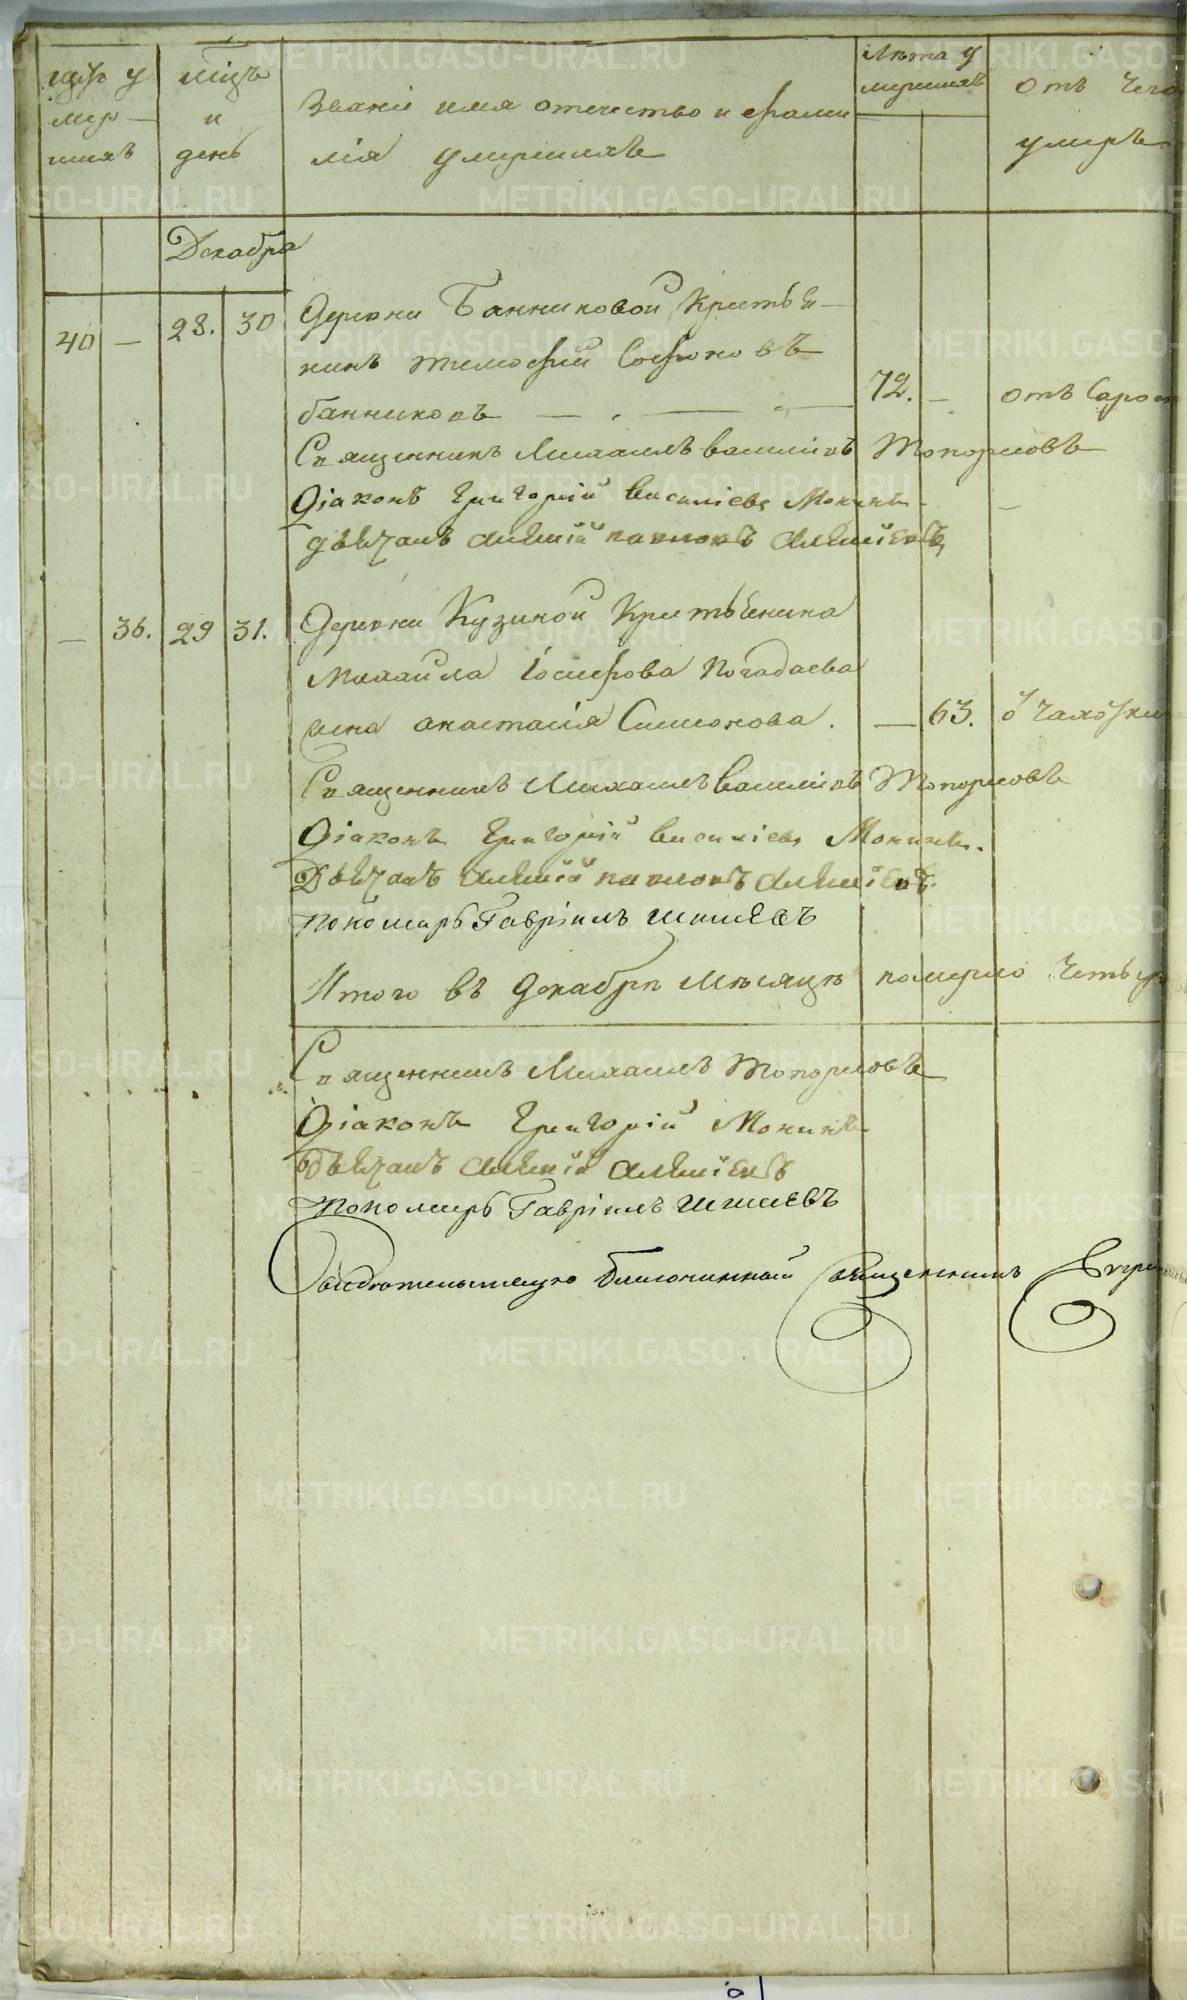 щоръ у
мер—
шихъ
мѣцъ
и
день
Званіе имя отечество и фами
лія умершихъ
Лѣта у
мершихъ
отъ чего
умеръ
Декабря
40 — 28. 30 Деревни Банниковой Крестья—
нинъ тимофѣй Софоновъ
банниковъ — . — 72. — отъ Старос
Священникъ Михаилъ василіевъ Топорковъ
Діаконъ Григорій василіевъ Мокинъ
дьячекъ алексій павловъ алексіевъ
— 36. 29 31. Деревни Кузиной Крестьянина
михаила Іосифова Погадаева
жена анастасія Симонова. — 63. ѿ чахотки
Священникъ Михаилъ василіевъ Топорковъ
Діаконъ Григорій василіевъ Мокинъ.
Дьячекъ алексій павловъ алексіевъ.
Пономарь Гавріилъ Шишевъ
Итого въ декабрѣ мѣсяцѣ померло четыр
Священникъ Михаилъ Топорковъ
Діаконъ Григорій Мокинъ
дьячекъ алексій алексіевъ
Пономарь Гавріилъ Шишевъ
Свидѣтельствую Благочинный Священникъ
METRIKI.GASO-URAL.RU